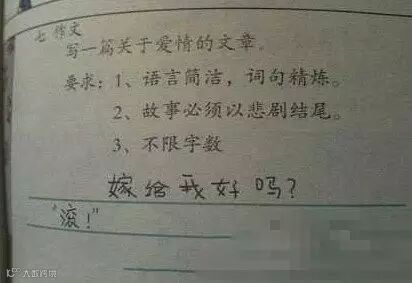 七 作文
写一篇关于爱情的文章。
要求：1、语言简洁，词句精炼。
2、故事必须以悲剧结尾。
3、不限字数
嫁给我好吗？
“滚！”
大数跨境